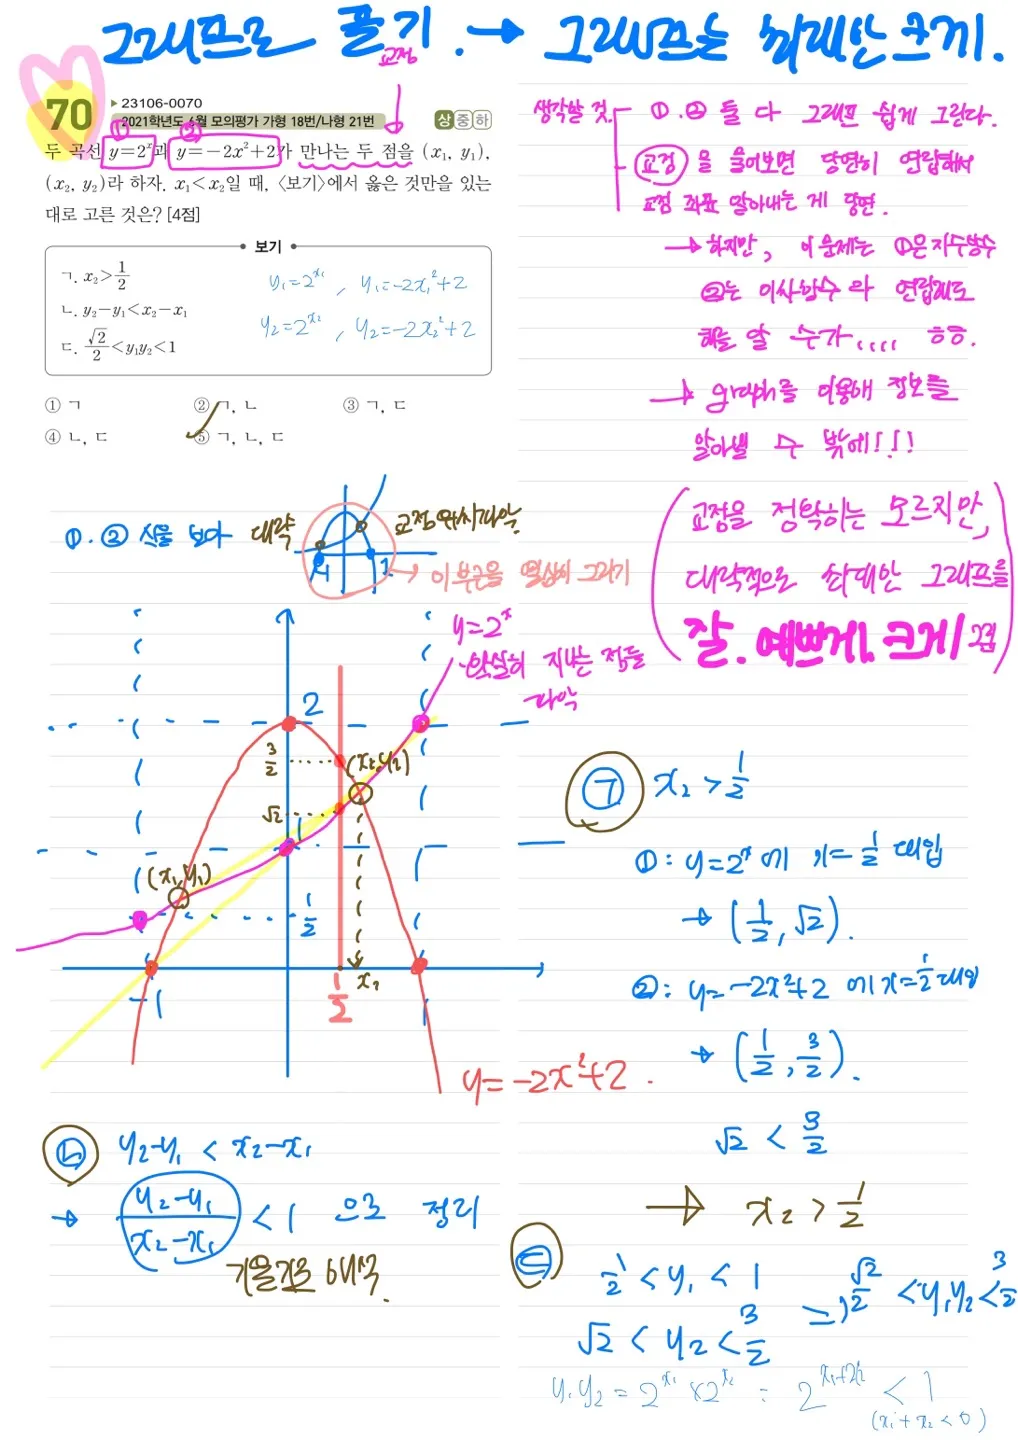 그래프로 풀기. → 그래프는 최대한 크게.
교점
70
▶ 23106-0070
2021학년도 6월 모의평가 가형 18번/나형 21번
상 중 하
① ②
두 곡선 y=2^x과 y=-2x²+2가 만나는 두 점을 (x₁, y₁),
(x₂, y₂)라 하자. x₁<x₂일 때, 〈보기〉에서 옳은 것만을 있는
대로 고른 것은? [4점]
보기
ㄱ. x₂>1/2
ㄴ. y₂-y₁<x₂-x₁
ㄷ. √2/2<y₁y₂<1
y₁=2^x₁ , y₁=-2x₁²+2
y₂=2^x₂ , y₂=-2x₂²+2
① ㄱ ② ㄱ, ㄴ ③ ㄱ, ㄷ
④ ㄴ, ㄷ ⑤ ㄱ, ㄴ, ㄷ
생각할 것.
①.② 둘 다 그래프 쉽게 그린다.
교점을 물어보면 당연히 연립해서
교점 좌표 알아내는 게 당연.
→ 하지만, 이 문제는 ①은 지수함수
②는 이차함수 라 연립해도
해를 알 수가.... ㅎㅎ.
→ graph를 이용해 정보를
알아낼 수 밖에!!!
(교점을 정확히는 모르지만,
대략적으로 최대한 그래프를
잘. 예쁘게. 크게!
①.② 식을 보아 대략
교점위치파악.
-1 1
→ 이 부근을 열심히 그리기
y=2^x
확실히 지나는 점들
파악
2
3/2
(x₂,y₂)
√2
1
(x₁,y₁)
1/2
-1
1/2
x₂
1
y=-2x²+2.
㉠ x₂>1/2
①: y=2^x에 x=1/2 대입
→ (1/2, √2).
②: y=-2x²+2 에 x=1/2 대입
→ (1/2, 3/2).
√2 < 3/2
→ x₂>1/2
㉡ y₂-y₁ < x₂-x₁
→ (y₂-y₁)/(x₂-x₁) < 1 으로 정리
기울기로 해석.
㉢ 1/2 < y₁ < 1
√2 < y₂ < 3/2
⇒ √2/2 < y₁y₂ < 3/2
y₁y₂ = 2^x₁ × 2^x₂ = 2^(x₁+x₂) < 1
(x₁+x₂<0)